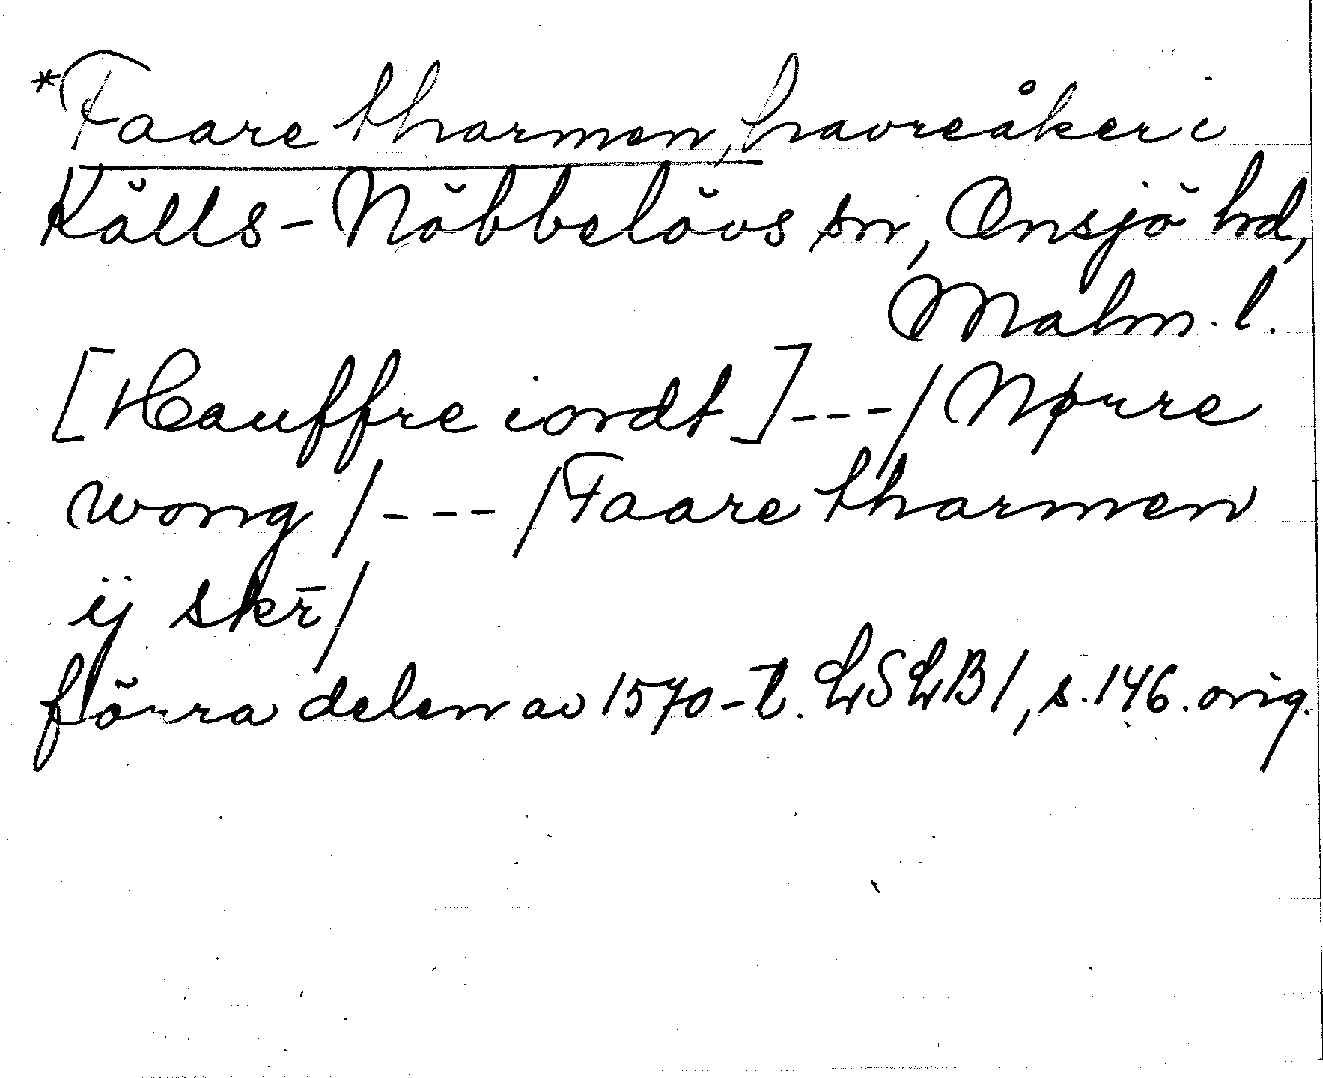 *Faare tharmen, havreåker i
Källs-Nöbbelövs sn, Onsjö hd,
Malm. l.
[Hauffre iordt]---/Nørre
wong/---/Faare tharmen
ij skr̄/
förra delen av 1570-t. LSLB1, s. 146. orig.